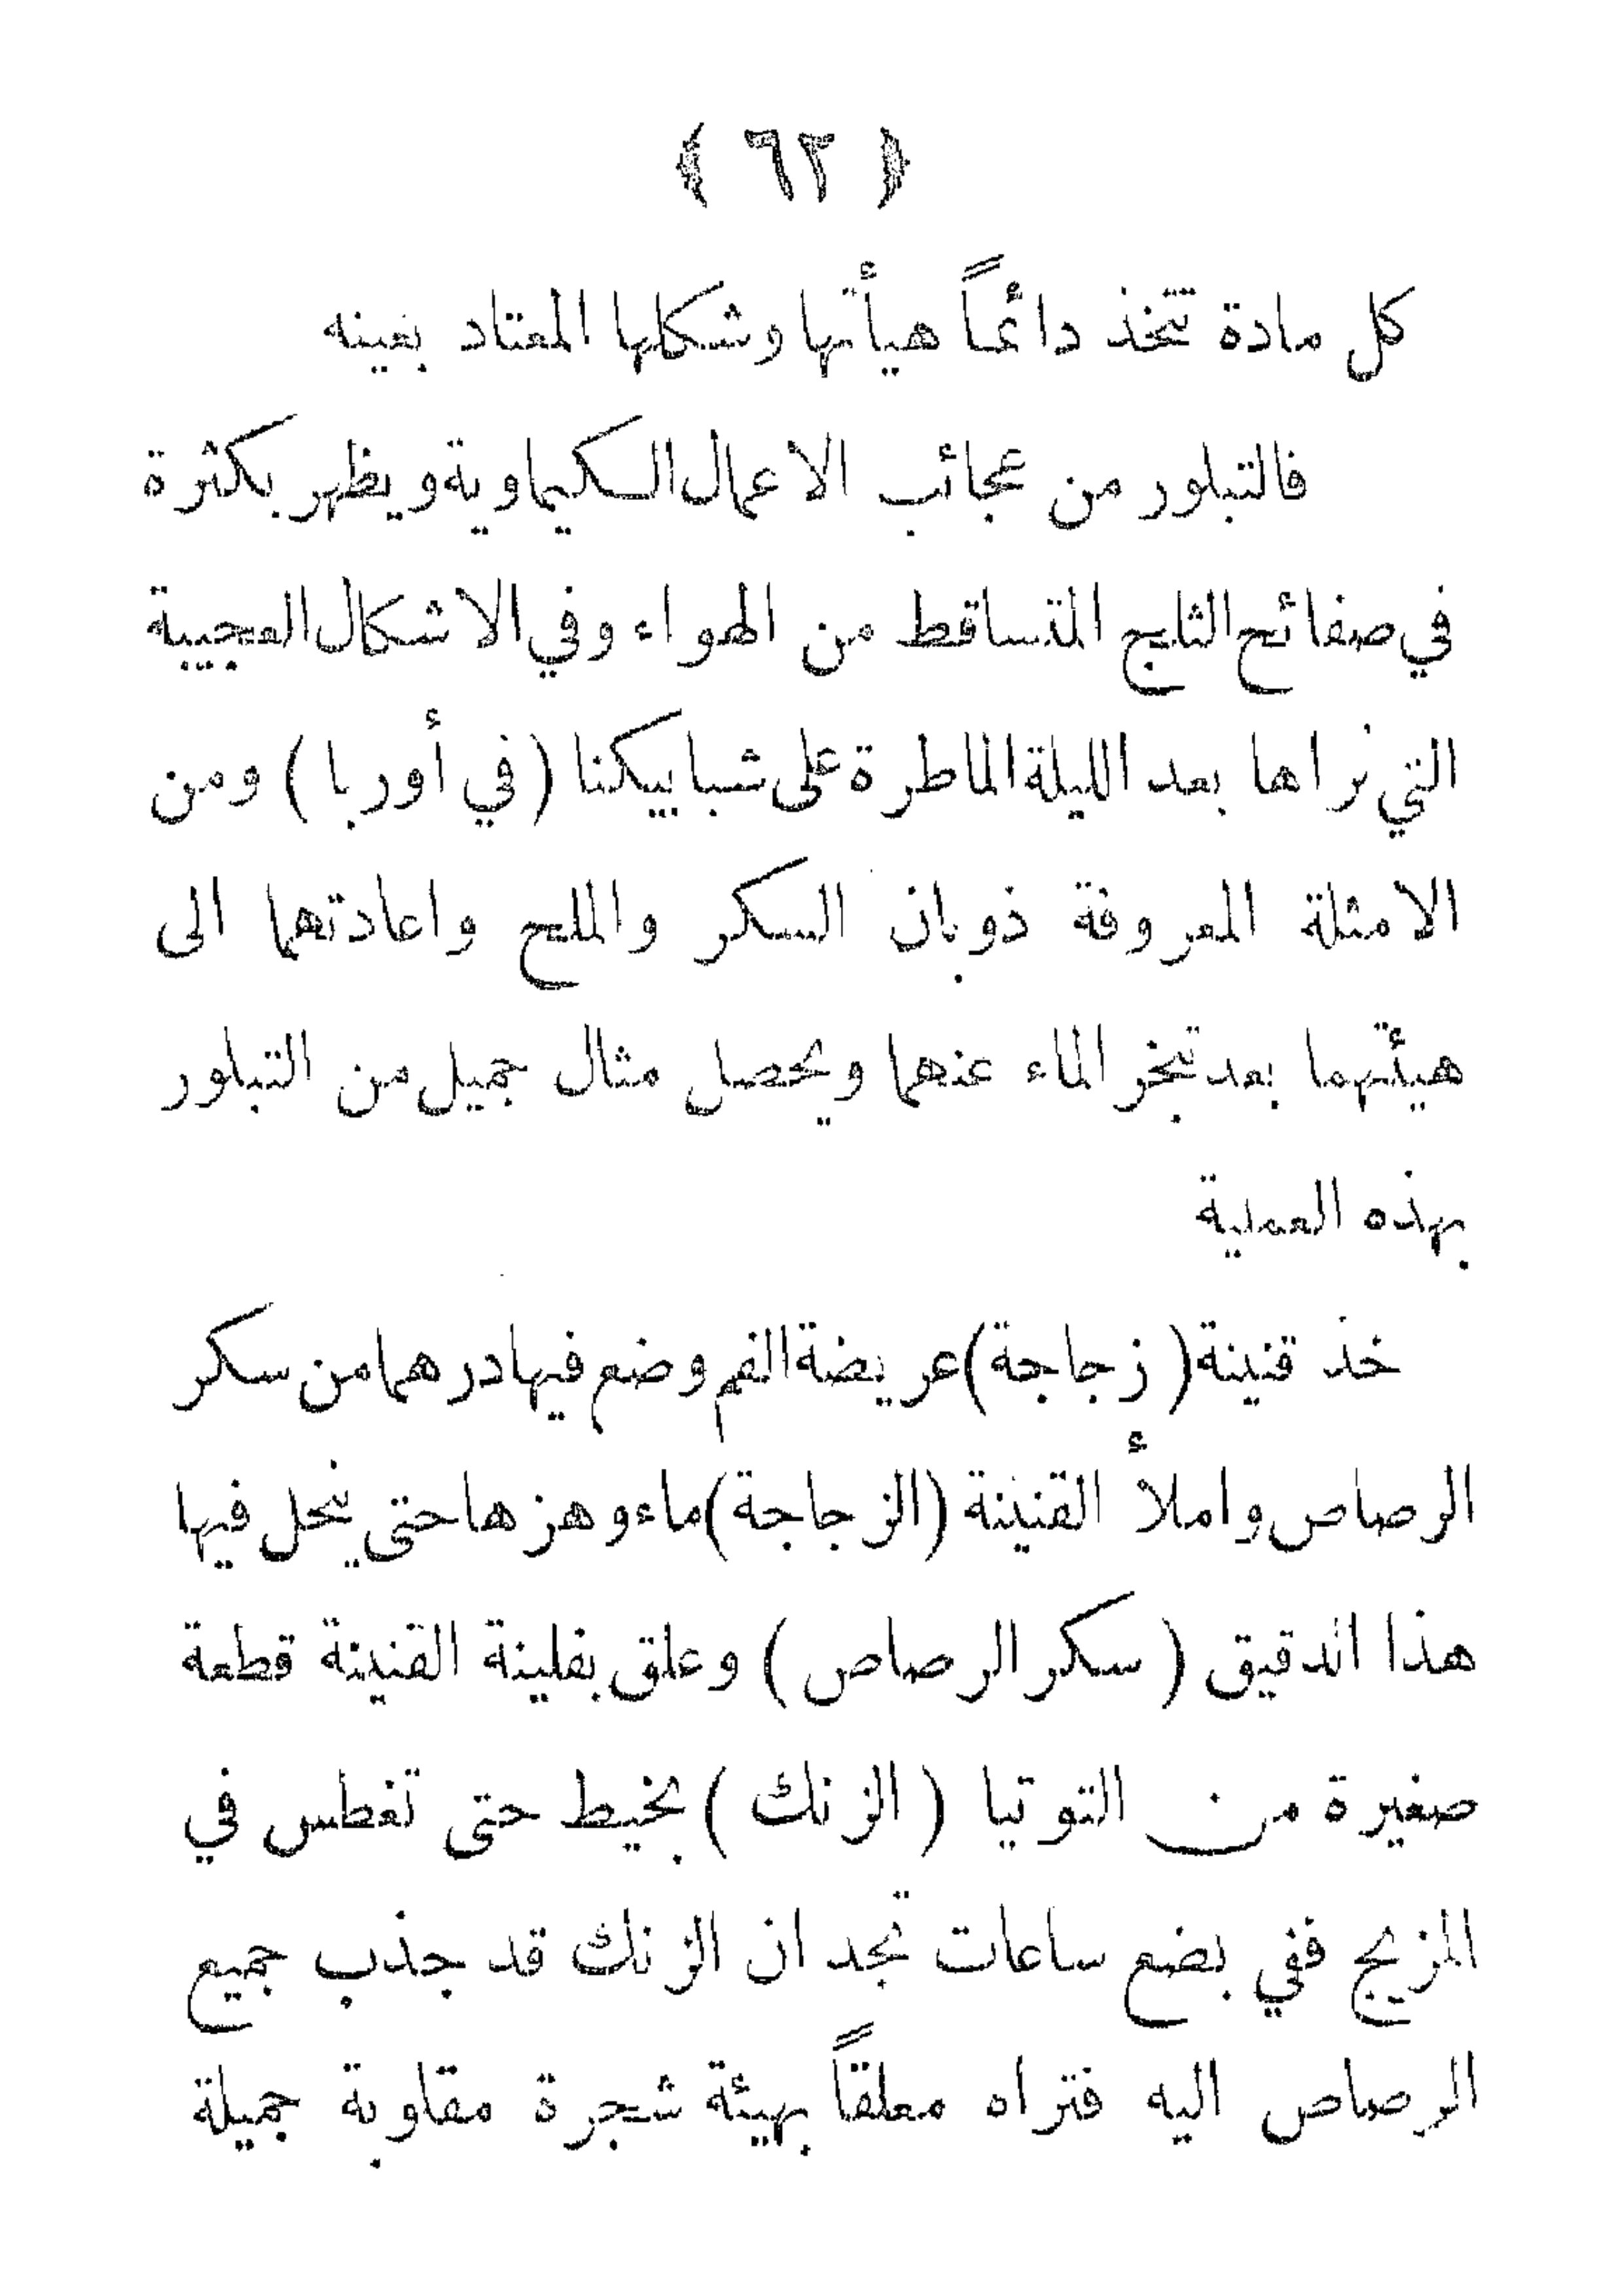 ﴿ ٦٢ ﴾
كل مادة تتخذ دائماً هيأتها وشكلها المعتاد بعينه
فالتبلور من عجائب الاعمال الكيماوية ويظهر بكثرة
في صفائح الثلج المتساقط من الهواء وفي الاشكال العجيبة
التي نراها بعد الليلة الماطرة على شبابيكنا (في أوربا) ومن
الامثلة المعروفة ذوبان السكر والملح واعادتهما الى
هيئتهما بعد تبخر الماء عنهما ويحصل مثال جميل من التبلور
بهذه العملية
خذ قنينة (زجاجة) عريضة الفم وضع فيها درهما من سكر
الرصاص واملأ القنينة (الزجاجة) ماء وهزها حتى ينحل فيها
هذا الدقيق (سكر الرصاص) وعلق بفلينة القنينة قطعة
صغيرة من التوتيا (الزنك) بخيط حتى تغطس في
المزيج ففي بضع ساعات تجد ان الزنك قد جذب جميع
الرصاص اليه فتراه معلقاً بهيئة شجرة مقلوبة جميلة